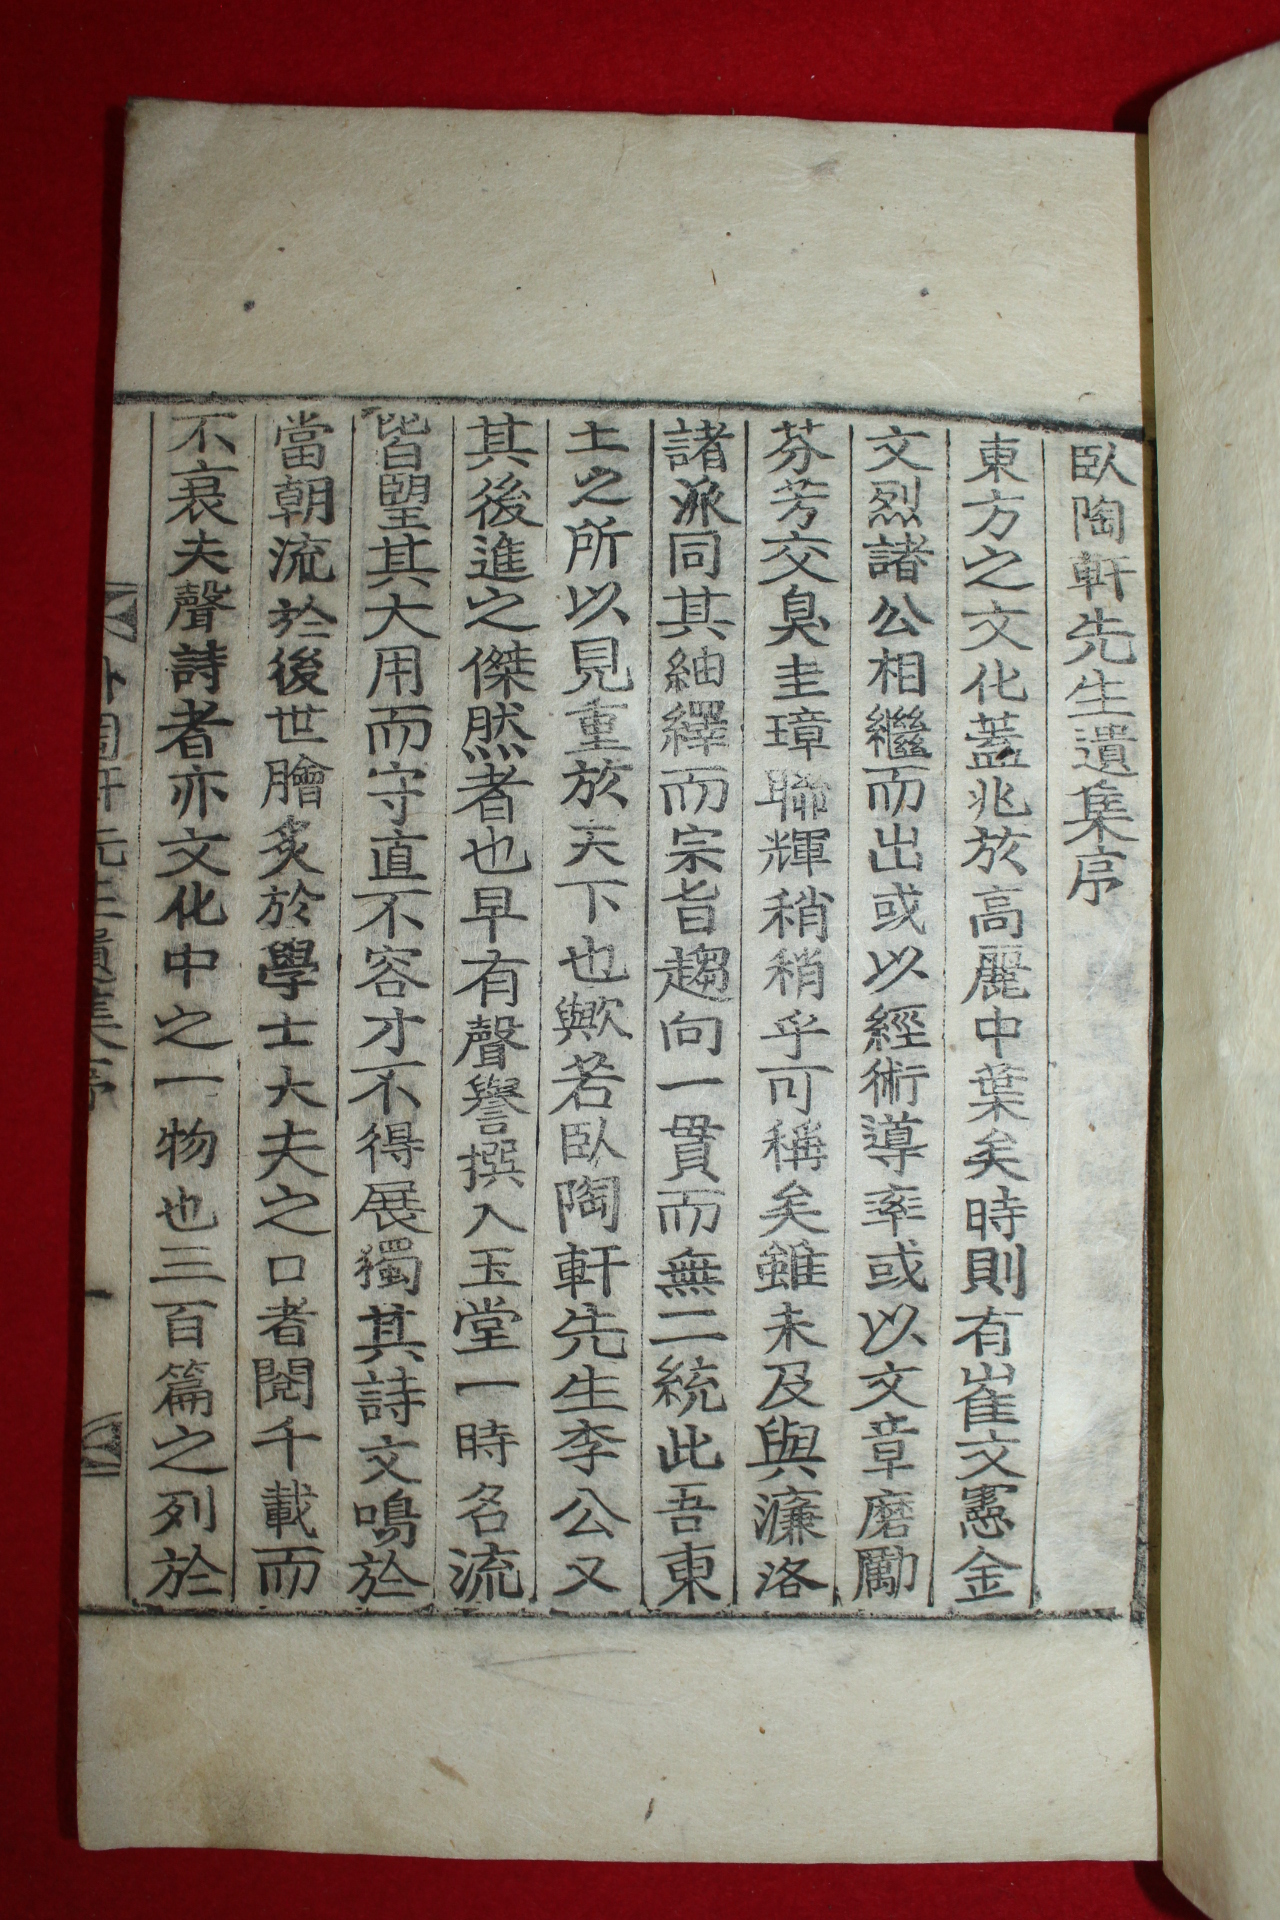 臥陶軒先生遺集序
東方之文化蓋兆於高麗中葉矣時則有崔文憲金
文烈諸公相繼而出或以經術導率或以文章磨勵
芬芳交臭圭璋聯輝稍稍乎可稱矣雖未及與濂洛
諸派同其紬繹而宗旨趨向一貫而無二統此吾東
土之所以見重於天下也歟若臥陶軒先生李公又
其後進之傑然者也早有聲譽撰入玉堂一時名流
皆望其大用而守直不容才不得展獨其詩文鳴於
當朝流於後世膾炙於學士大夫之口者閱千載而
不衰夫聲詩者亦文化中之一物也三百篇之列於
臥陶軒先生遺集序
一